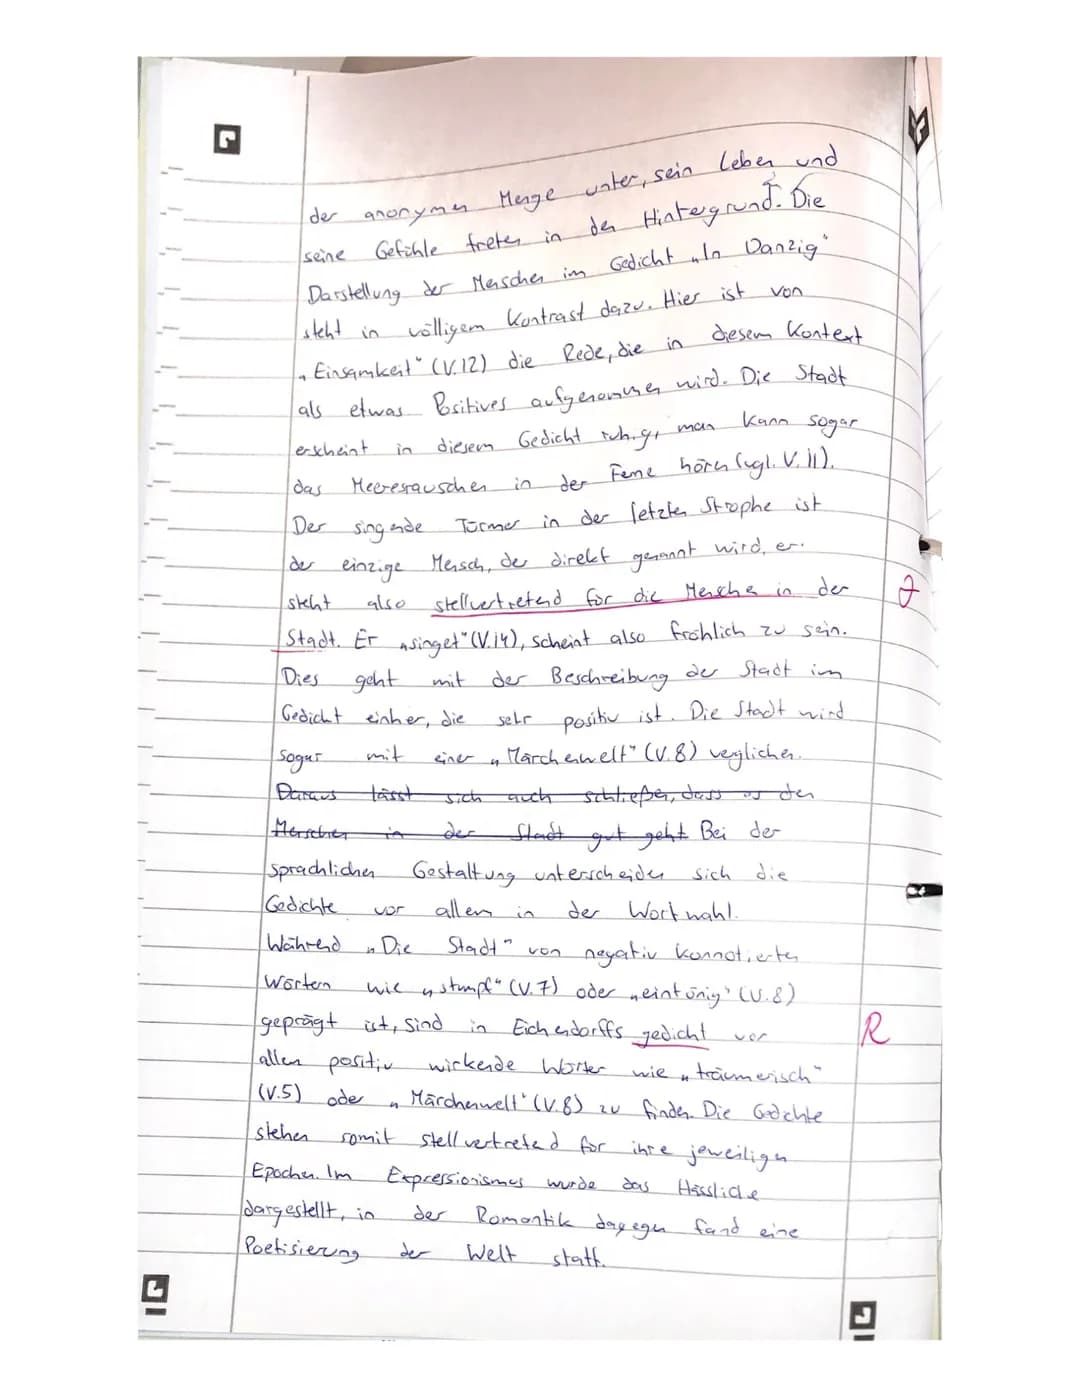 der anonymen Menge unter, sein Leben und
seine Gefühle treten in den Hintergrund. Die
Darstellung der Menschen im Gedicht „In Danzig"
steht in völligem Kontrast dazu. Hier ist von
„Einsamkeit" (V.12) die Rede, die in diesem Kontext
als etwas Positives aufgenommen wird. Die Stadt
erscheint in diesem Gedicht ruhig, man kann sogar
das Meeresrauschen in der Ferne hören (vgl. V. 11).
Der singende Türmer in der letzten Strophe ist
der einzige Mensch, der direkt genannt wird, er
steht also stellvertretend für die Menschen in der
Stadt. Er „singet" (V.14), scheint also fröhlich zu sein.
Dies geht mit der Beschreibung der Stadt im
Gedicht einher, die sehr positiv ist. Die Stadt wird
sogar mit einer „Märchenwelt" (V.8) verglichen.
Daraus lässt sich auch schließen, dass es den
Menschen in der Stadt gut geht Bei der
sprachlichen Gestaltung unterscheiden sich die
Gedichte vor allem in der Wortwahl.
Während „Die Stadt" von negativ konnotierten
Wörtern wie „stumpf" (V.7) oder „eintönig" (V.8)
geprägt ist, sind in Eichendorffs gedicht vor
R
allem positiv wirkende Wörter wie „träumerisch"
(V.5) oder „Märchenwelt" (V.8) zu finden. Die Gedichte
stehen somit stellvertretend für ihre jeweiligen
Epochen. Im Expressionismus wurde das Hässliche
dargestellt, in der Romantik dagegen fand eine
Poetisierung der Welt statt.